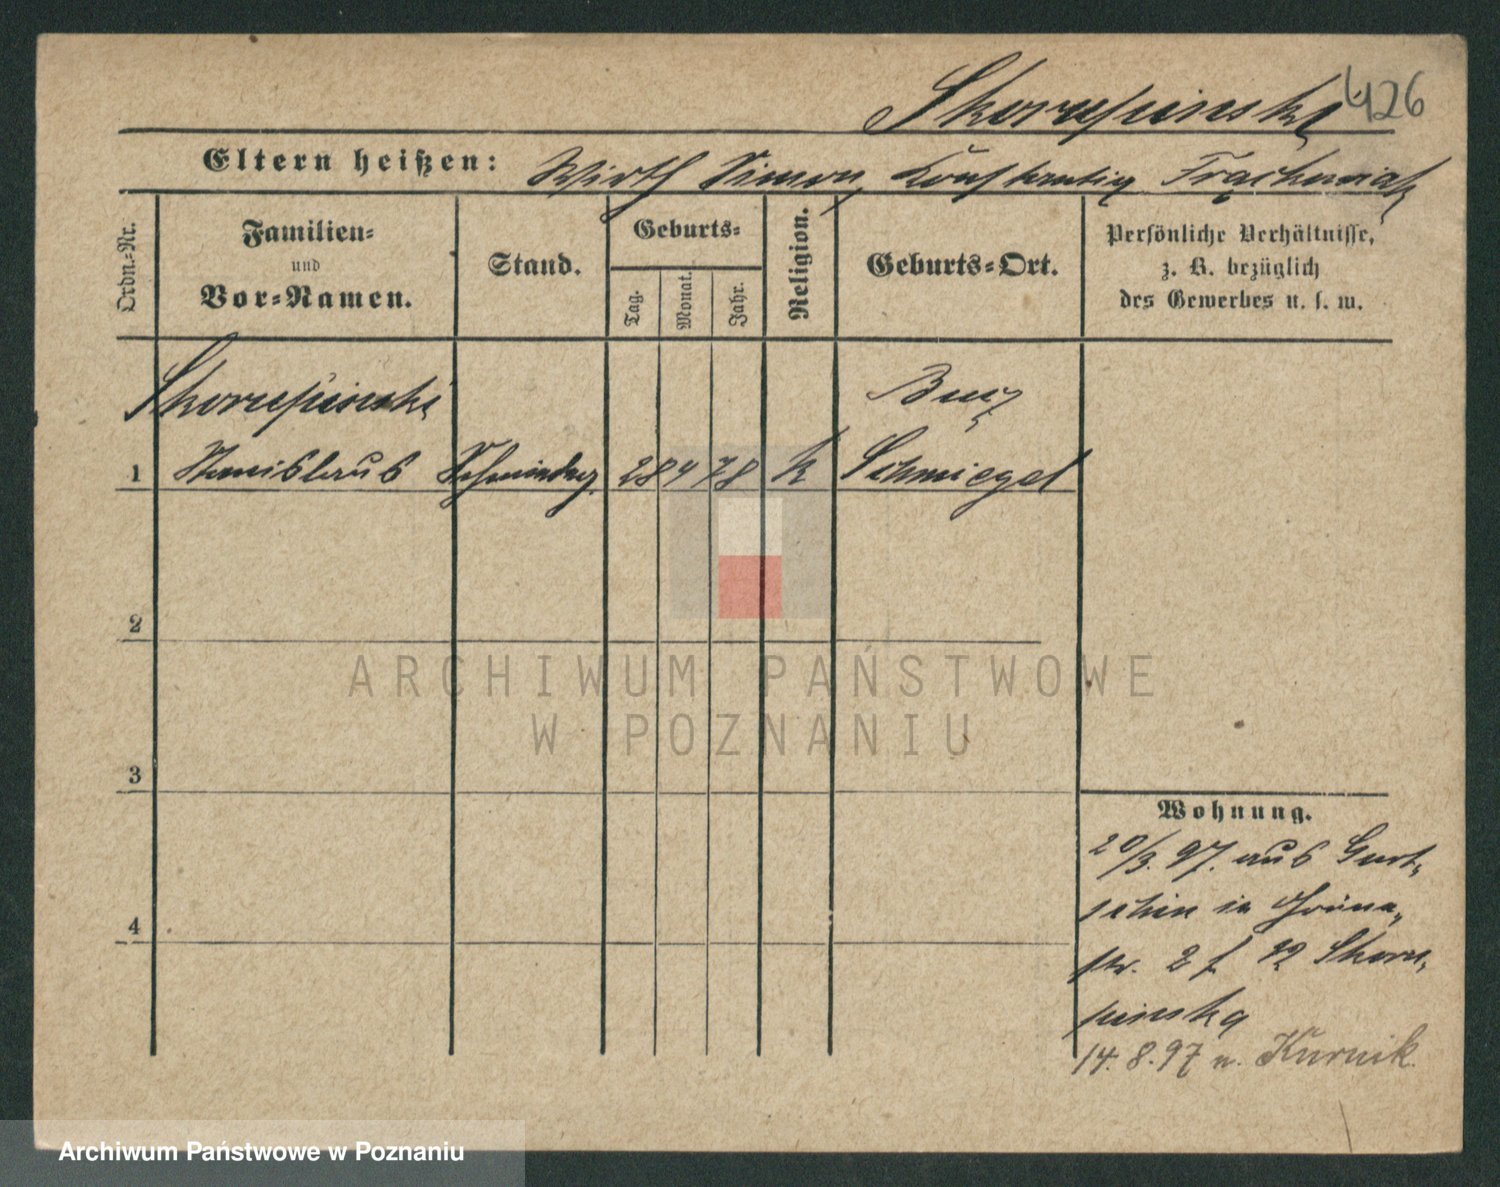 Skorupinski
426
Eltern heißen: Wirth Simon, Konstantia Frąckowiak
Ordn.-Nr.
Familien-
und
Vor-Namen.
Stand.
Geburts-
Tag.
Monat.
Jahr.
Religion.
Geburts-Ort.
Persönliche Verhältnisse,
z. B. bezüglich
des Gewerbes u. s. w.
Skorupinski
1 Stanislaus 28 4 78 k Schmiegel
2
3
4
Wohnung.
20/3. 97. aus Gurt-
schin in Grüne-
str. 2 f. Skoru-
pinska
14. 8. 97 n. Kurnik
ARCHIWUM PAŃSTWOWE
W POZNANIU
Archiwum Państwowe w Poznaniu